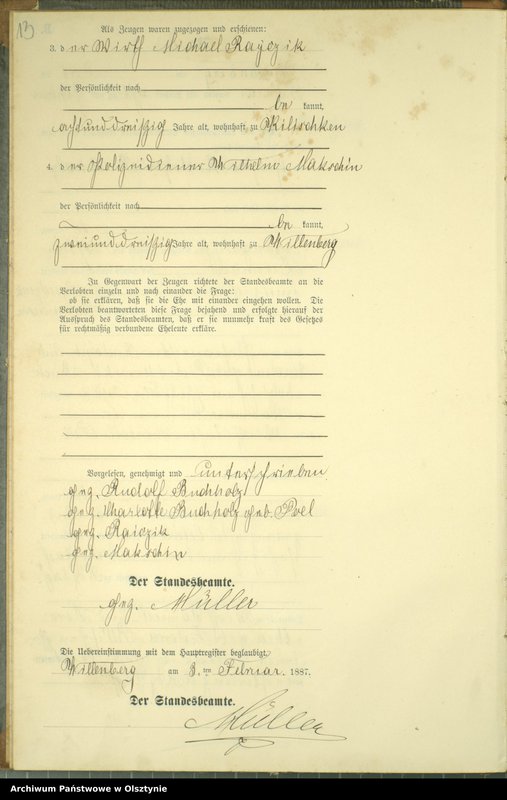 13
Als Zeugen waren zugezogen und erschienen:
3. der Wirth Michael Rayczik
der Persönlichkeit nach
be kannt,
achtunddreißig Jahre alt, wohnhaft zu Wiltschken
4. der Polizeidiener Wilhelm Makrchin
der Persönlichkeit nach
be kannt,
zweiunddreißig Jahre alt, wohnhaft zu Willenberg
In Gegenwart der Zeugen richtete der Standesbeamte an die
Verlobten einzeln und nach einander die Frage:
ob sie erklären, daß sie die Ehe mit einander eingehen wollen. Die
Verlobten beantworteten diese Frage bejahend und erfolgte hierauf der
Ausspruch des Standesbeamten, daß er sie nunmehr kraft des Gesetzes
für rechtmäßig verbundene Eheleute erkläre.
Vorgelesen, genehmigt und unterschrieben
gez. Rudolf Buchholz
gez. Charlotte Buchholz geb. Poel
gez. Raiczik
gez. Makrchin
Der Standesbeamte.
gez. Müller
Die Uebereinstimmung mit dem Hauptregister beglaubigt,
Willenberg am 3. ten Februar. 1887.
Der Standesbeamte.
Müller
Archiwum Państwowe w Olsztynie